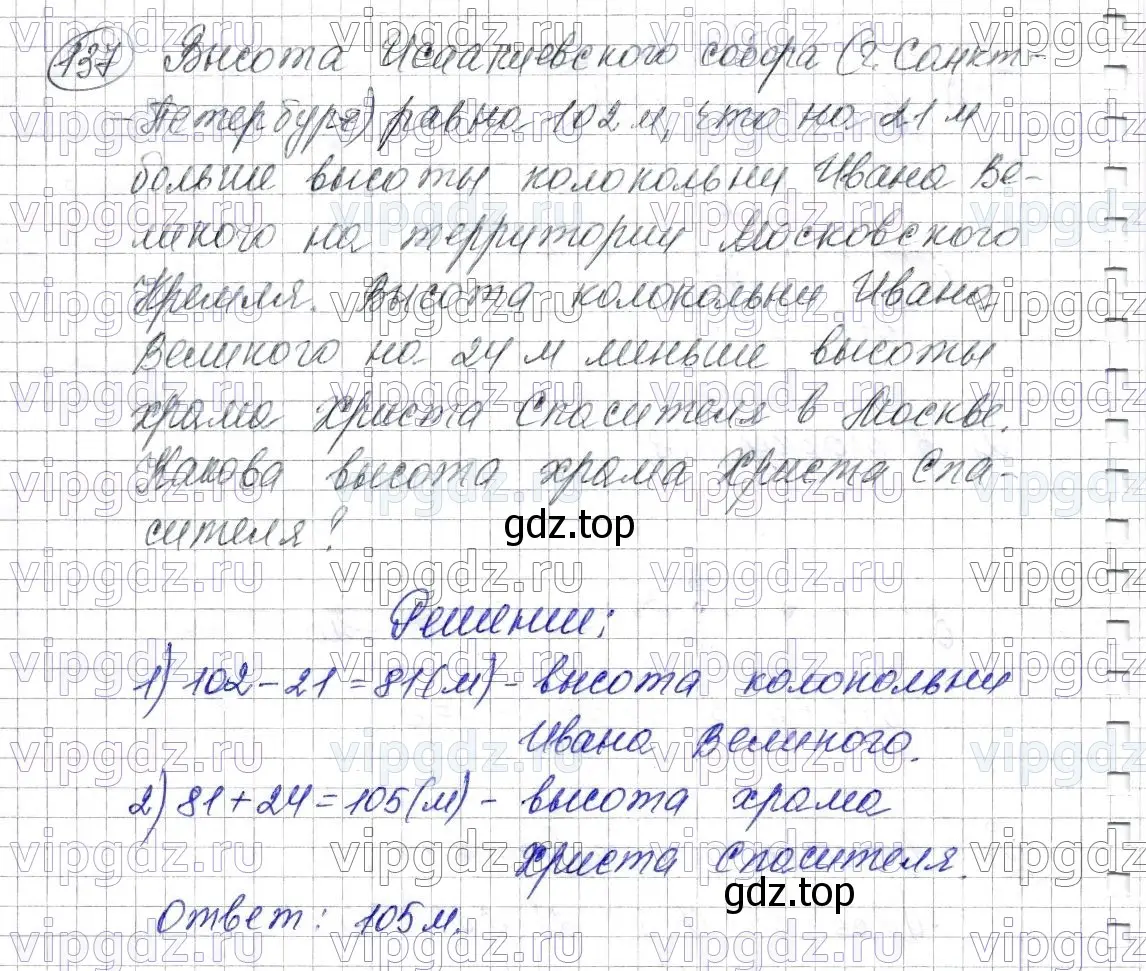 137 Высота Исаакиевского собора (г. Санкт-
- Петербург) равна 102 м, что на 21 м
больше высоты колокольни Ивана Ве-
ликого на территории Московского
Кремля. Высота колокольни Ивана
Великого на 24 м меньше высоты
храма Христа Спасителя в Москве.
Какова высота храма Христа Спа-
сителя?
gdz.top
Решение:
1) 102 - 21 = 81 (м) - высота колокольни
Ивана Великого.
2) 81 + 24 = 105 (м) - высота храма
Христа Спасителя.
gdz.top
Ответ: 105 м.
vipgdz.ru